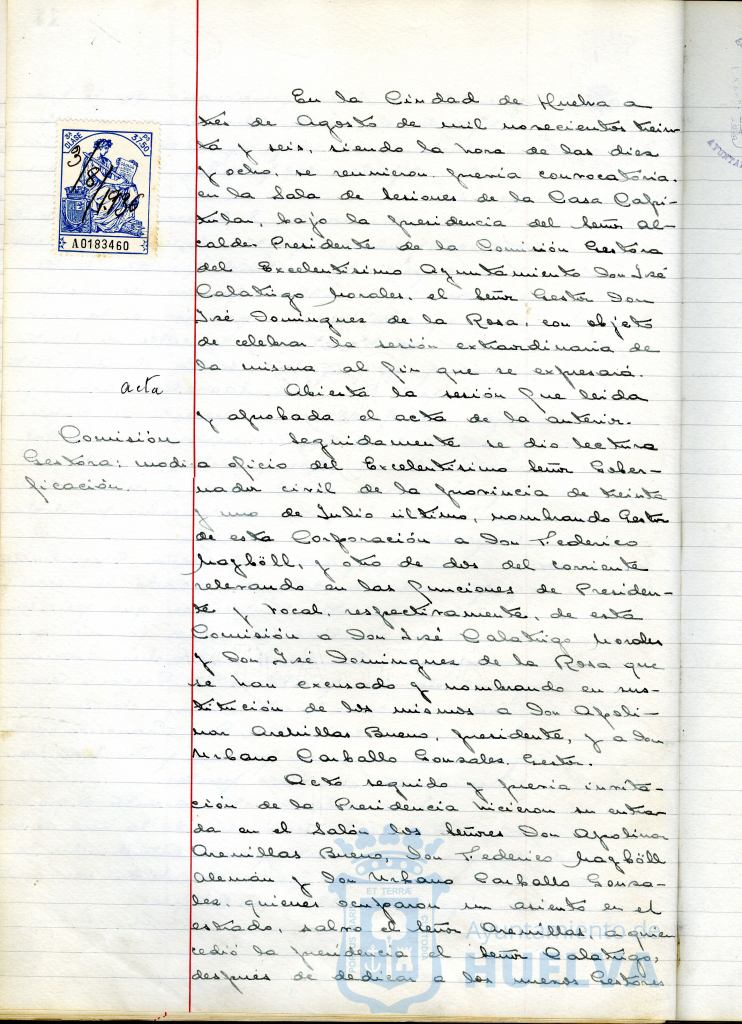 En la Ciudad de Huelva a
tres de Agosto de mil novecientos trein-
ta y seis, siendo la hora de las diez
y ocho, se reunieron, previa convocatoria,
en la Sala de Sesiones de la Casa Capi-
tular, bajo la presidencia del Señor Al-
calde Presidente de la Comisión Gestora
del Excelentísimo Ayuntamiento Don José
Calatrigo Morales, el Señor Gestor Don
José Dominguez de la Rosa, con objeto
de celebrar la sesión extraordinaria de
la misma al fin que se expresará.
acta
Abierta la sesión fue leida
y aprobada el acta de la anterior.
Comisión
Gestora: modi-
ficación.
Seguidamente se dio lectura
a oficio del Excelentísimo Señor Gober-
nador civil de la provincia de treinta
y uno de Julio último, nombrando Gestor
de esta Corporación a Don Federico
Mayböll, y otro de dos del corriente
relevando en las funciones de Presiden-
te y vocal, respectivamente, de esta
Comisión a Don José Calatrigo Morales
y Don José Dominguez de la Rosa que
se han excusado y nombrando en sus-
titución de los mismos a Don Apoli-
nar Arenillas Bueno, presidente, y a Don
Urbano Carballo Gonzales, Gestor.
Acto seguido y previa invita-
ción de la Presidencia hicieron su entra-
da en el Salón los Señores Don Apolinar
Arenillas Bueno, Don Federico Mayböll
Alemán y Don Urbano Carballo Gonza-
les, quienes ocuparon un asiento en el
estrado, salvo el Señor Arenillas, a quien
cedió la presidencia el Señor Calatrigo,
después de dedicar a los nuevos Gestores
3ª CLASE
Ps 37'50
3/8/1936
A0183460
PORTUS MARIS
ET TERRÆ
CUSTODIA
Ayuntamiento de
HUELVA